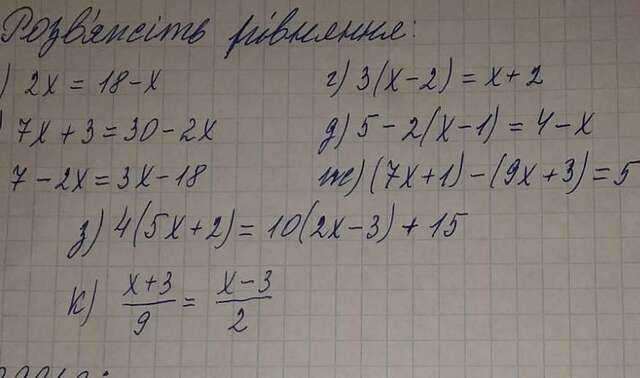 Розв'яжіть рівняння:
) 2x = 18 - x г) 3(x - 2) = x + 2
) 7x + 3 = 30 - 2x д) 5 - 2(x - 1) = 4 - x
7 - 2x = 3x - 18 ж) (7x + 1) - (9x + 3) = 5
з) 4(5x + 2) = 10(2x - 3) + 15
к) \frac{x+3}{9} = \frac{x-3}{2}